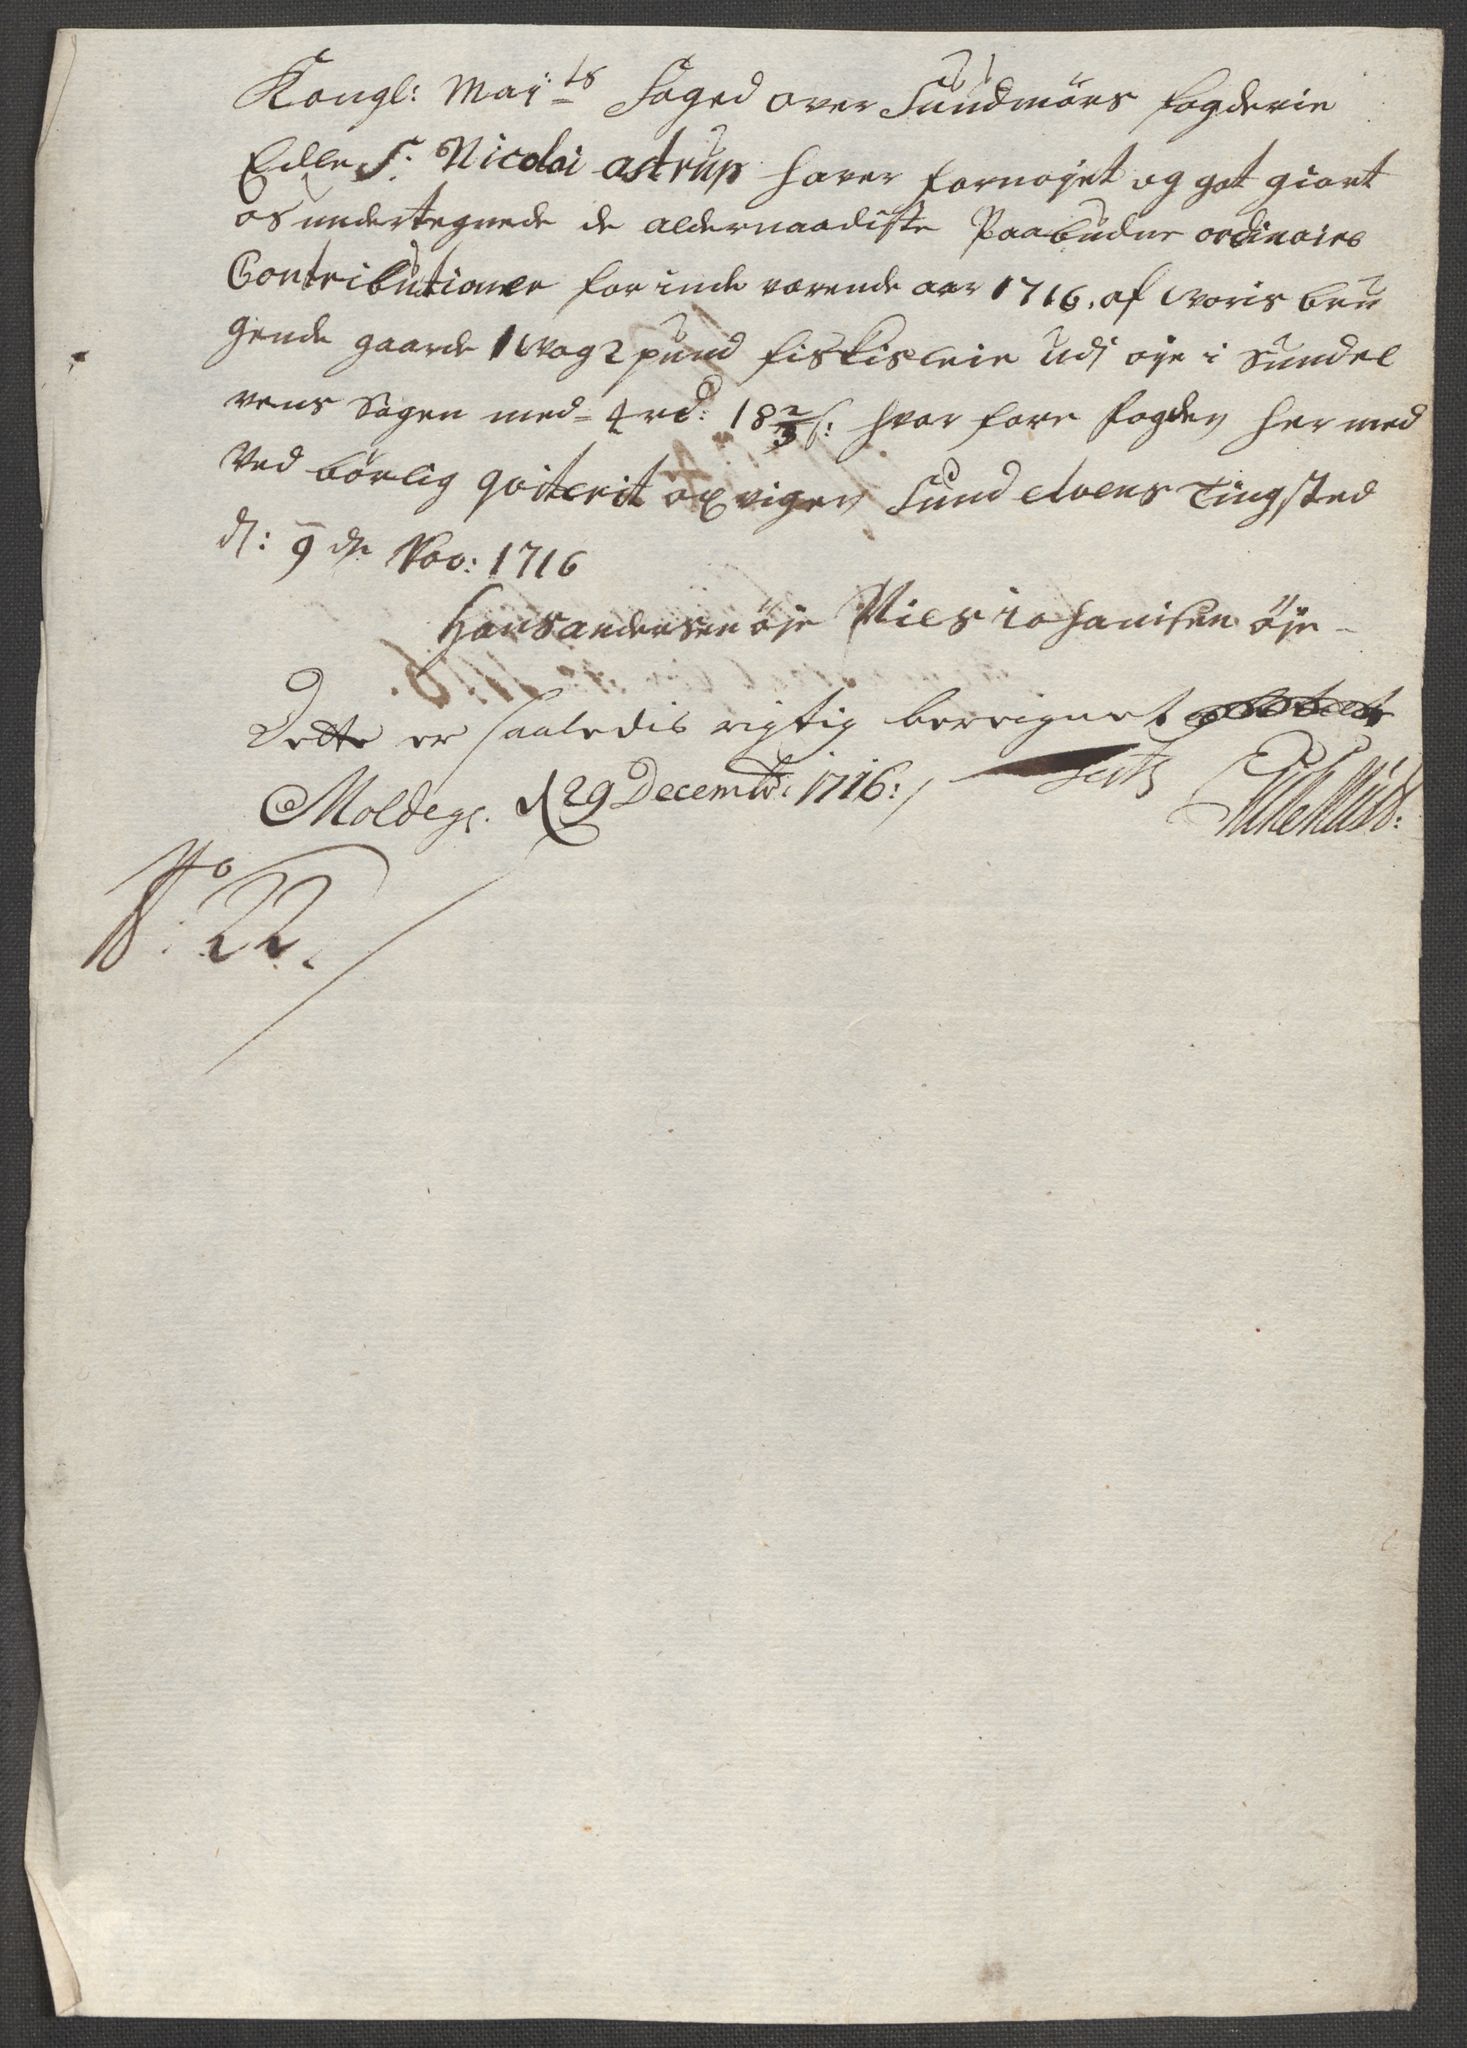 Kongl: Maij:ts Foged over Sundmørs fogderie
Edle Sr. Nicolai astrup haver fornøjet og got giort
os undertegnede de aldernaadiste Paabudne ordinaire
Contributioner for inde værende aar 1716. af woris bru
gende gaarde 1 wog 2 pund fiskisleie udj øje i Sundel
vens Sogen med 4 rd: 18 2/3 s: hvor fore fogden her med
Ved børlig qviterit Sund elvens Tingsted
d: 9 de Nov: 1716
Hans andersen øje Niels iohanisen øje
Dette er saaledis rigtig beregnet
Moldegr. d 29 Decembr: 1716:/
No: 22.